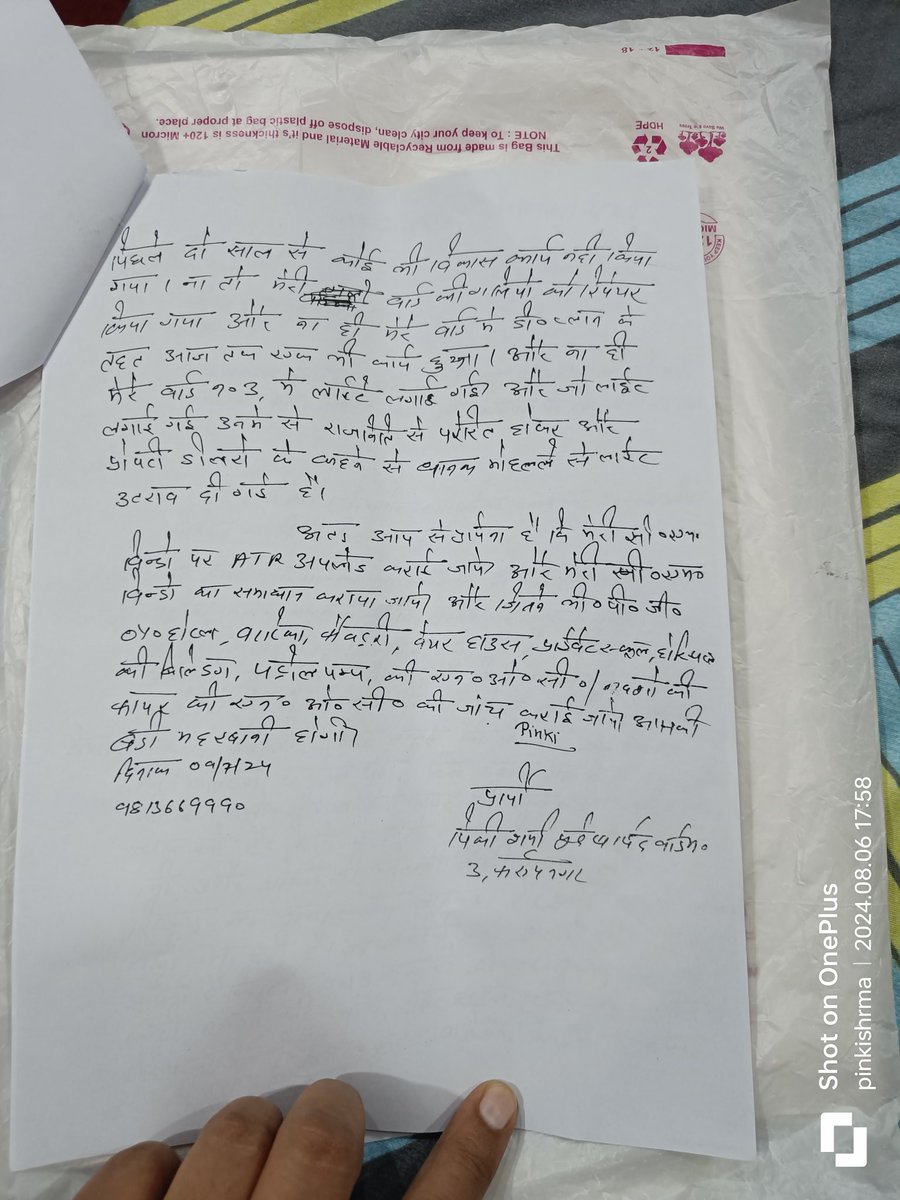 12 - 18
This Bag is made from Recyclable Material and it's thickness is 120+ Micron
NOTE : To keep your city clean, dispose off plastic bag at proper place.
2
HDPE
We Save the Trees
पिछले दो साल से कोई भी विकास कार्य नही किया
गया। ना तो मेरी वार्ड की गलियो को रिपेयर
किया गया और ना ही मेरे वार्ड मे डी०प्लान के
तहत आज तक एक भी कार्य हुआ। और ना ही
मेरे वार्ड न०3, मे लाईट लगाई गई और जो लाईट
लगाई गई उनमे से राजनिति से प्रेरित होकर और
प्रोपर्टी डीलरो के कहने से मोहल्ले से लाईट
उतराव दी गई है।
अतः आप से प्रार्थना है कि मेरी सी०एम०
विन्डो पर ATR अपलोड कराई जाये और मेरी सी०एम०
विन्डो का समाधान कराया जाये और जितने भी० पी० जी०
OYO होटल, वाटिका, फैक्ट्री, वेयर हाउस, प्राईवेट स्कूल, होस्पिटल
की बिल्डिंग, पट्रोल पम्प, की एन०ओ०सी०/ नक्शो की
फायर की एन० ओ० सी० की जांच कराई जाये आपकी
बडी महरबानी होगी
Pinki
दिनांक 09/7/24
9813669990
प्रार्थी
पिंकी शर्मा पूर्व पार्षद वार्ड न०
3,
Shot on OnePlus
pinkishrma | 2024.08.06 17:58